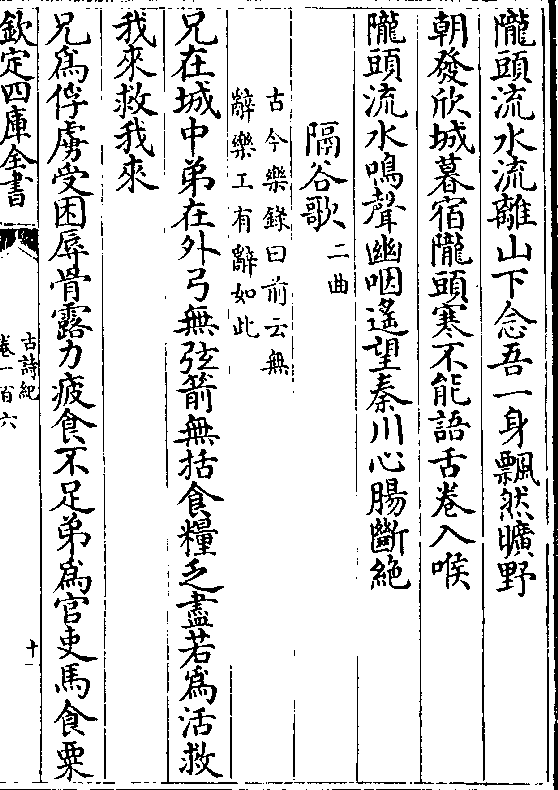 隴頭流水流離山下念吾一身飄然曠野
朝發欣城暮宿隴頭寒不能語舌卷入喉
隴頭流水鳴聲幽咽遙望秦川心腸斷絶
隔谷歌二曲
古今樂錄曰前云無
辭樂工有辭如此
兄在城中弟在外弓無弦箭無括食糧乏盡若爲活救
我來救我來
兄爲俘虜受困辱骨露力疲食不足弟爲官吏馬食粟
欽定四庫全書
古詩紀
卷一百六
十一